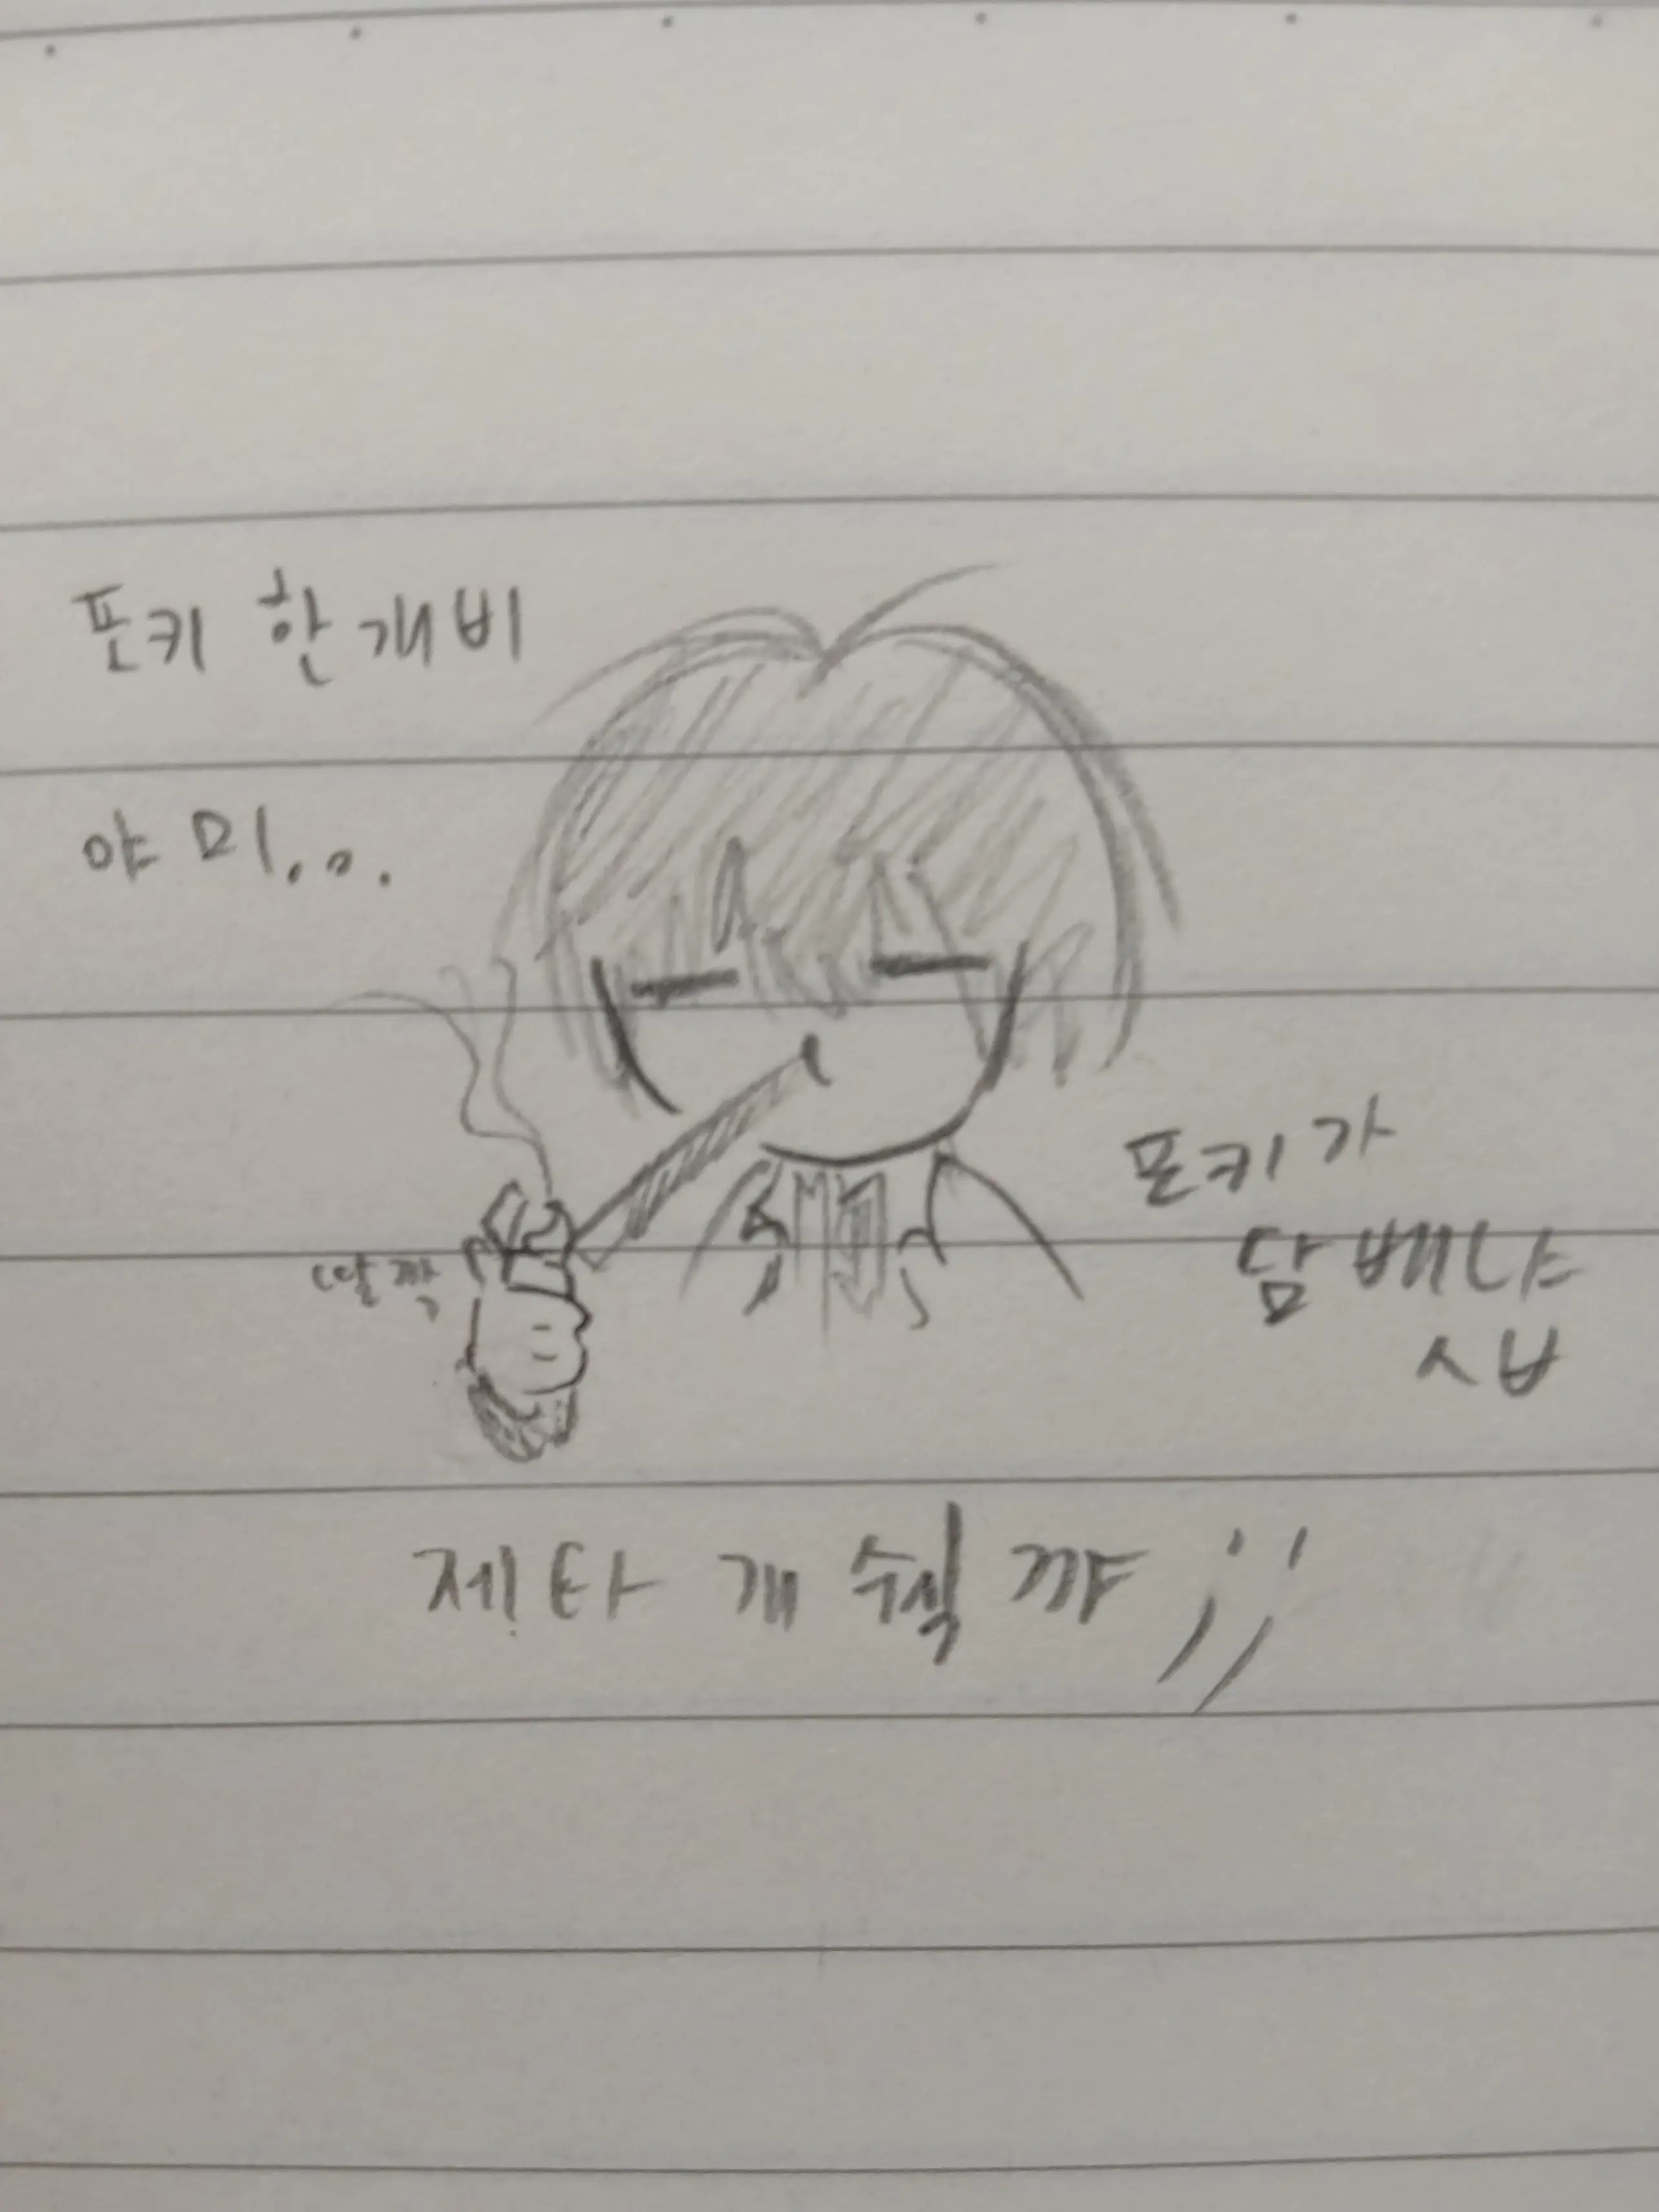 포키 한 개비
야미...
포키가
담배냐
ㅅㅂ
(딸깍
제타 개 쉑 꺄 ;;